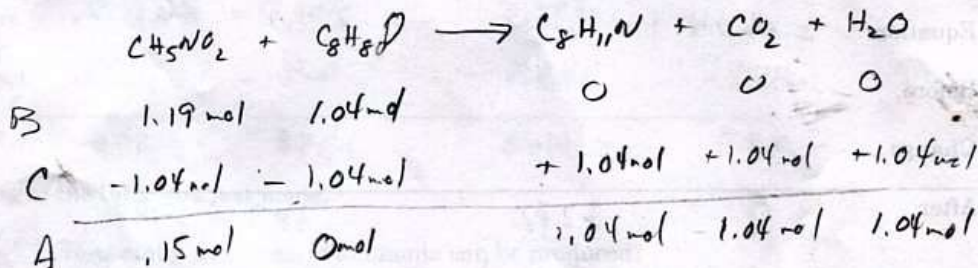 CH₅NO₂ + C₈H₈O → C₈H₁₁N + CO₂ + H₂O
B 1.19 mol 1.04 mol 0 0 0
C -1.04 mol - 1.04 mol + 1.04 mol +1.04 mol +1.04 mol
A .15 mol 0 mol 1.04 mol 1.04 mol 1.04 mol